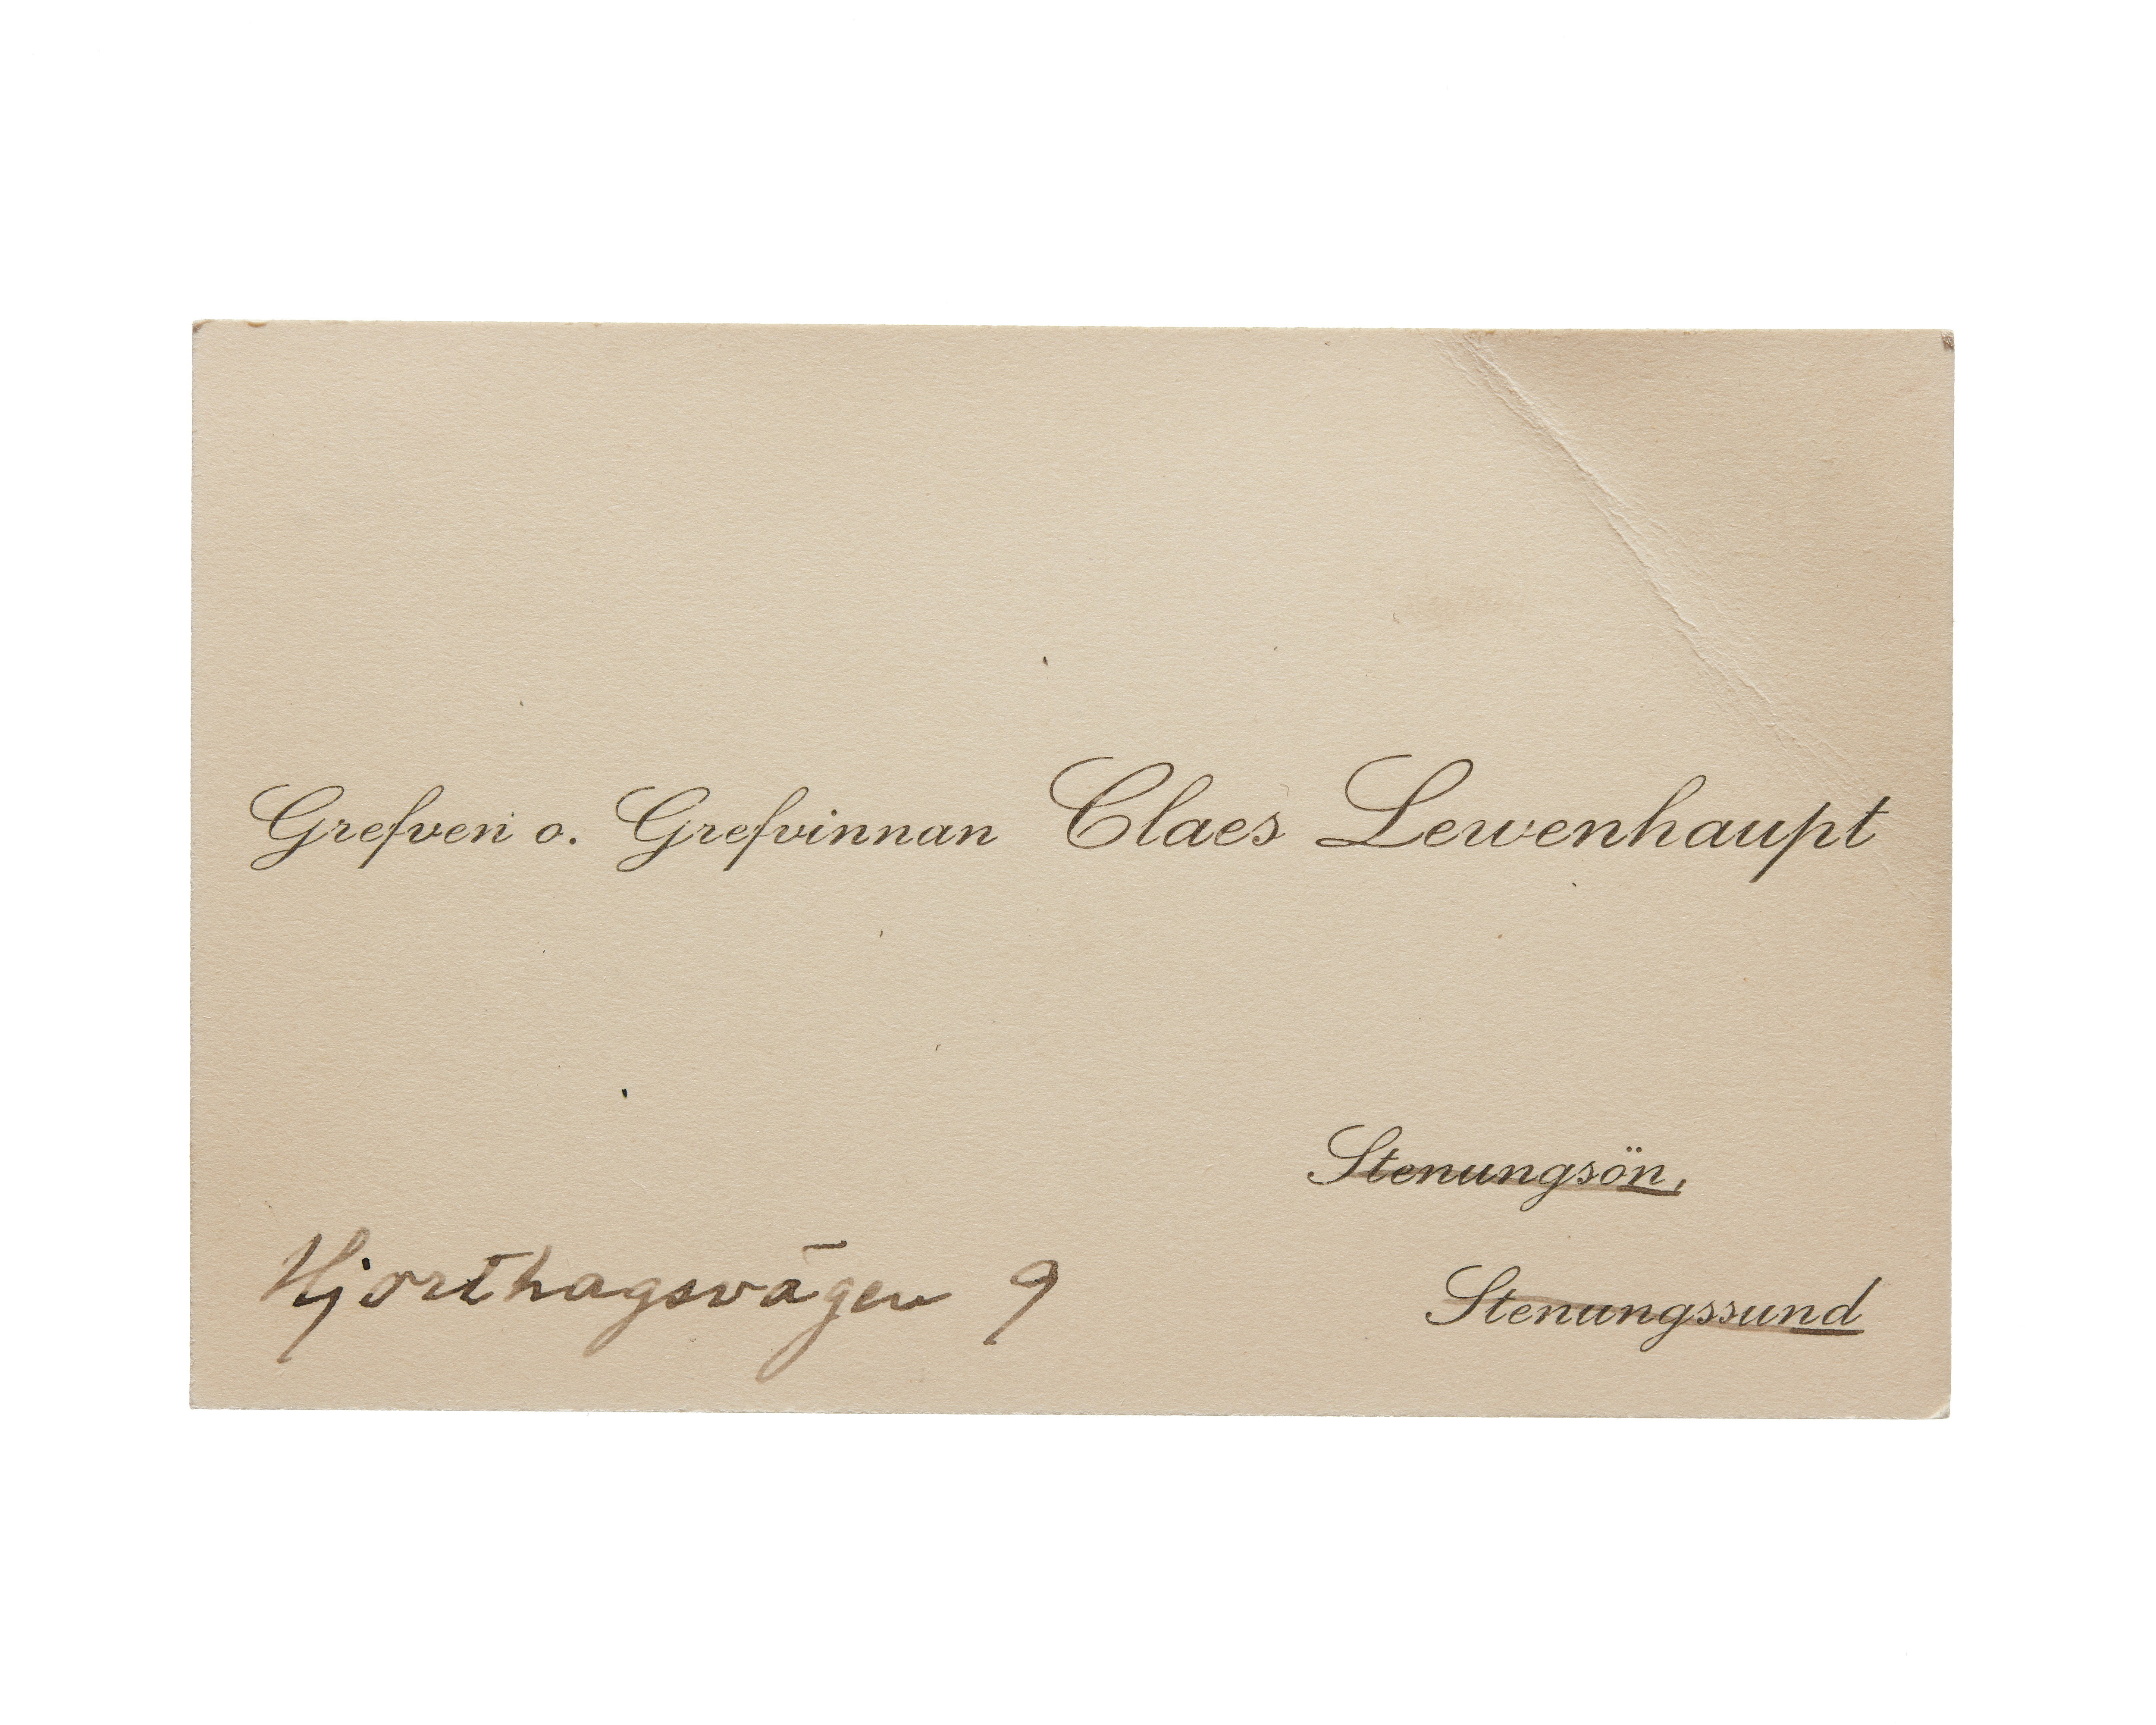 Grefven o. Grefvinnan Claes Lewenhaupt
Stenungsön,
Stenungssund
Hjorthagsvägen 9